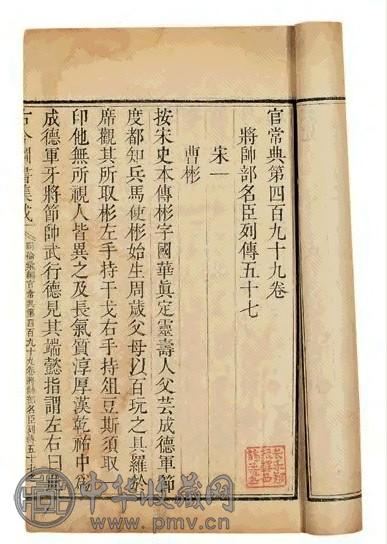 官常典第四百九十九卷
將帥部名臣列傳五十七
宋一
曹彬
按宋史本傳彬字國華眞定靈壽人父芸成德軍節
度都知兵馬使彬始生周歲父母以百玩之具羅於
席觀其所取彬左手持干戈右手持俎豆斯須取
印他無所視人皆異之及長氣質淳厚漢乾祐中爲
成德軍牙將節帥武行德見其端慤指謂左右曰此
古今圖書集成
官常典第四百九十九卷將帥部名臣列傳五十
中华收藏网
www.pmv.cn